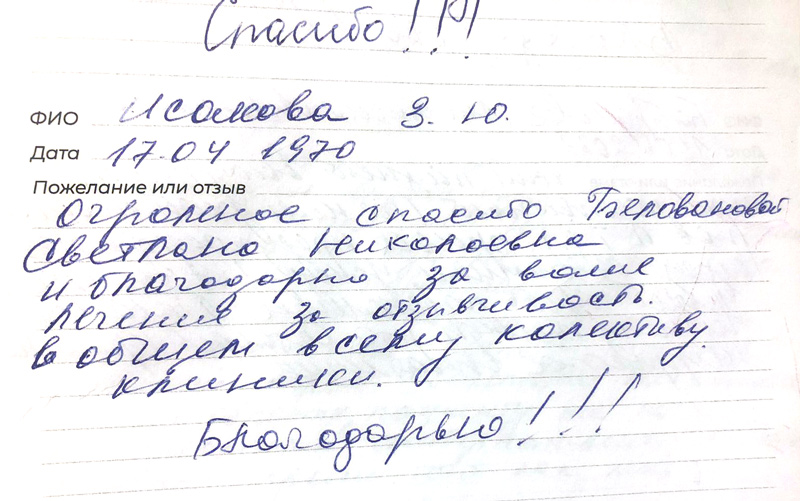 Спасибо!!!
ФИО Исакова З. Ю.
Дата 17.04 1970
Пожелание или отзыв
Огромное спасибо Беловановой
Светлана Николаевна
и благодарна за ваше
лечение за отзывчивость.
в общем всему колективу.
клиники.
Благодарью!!!